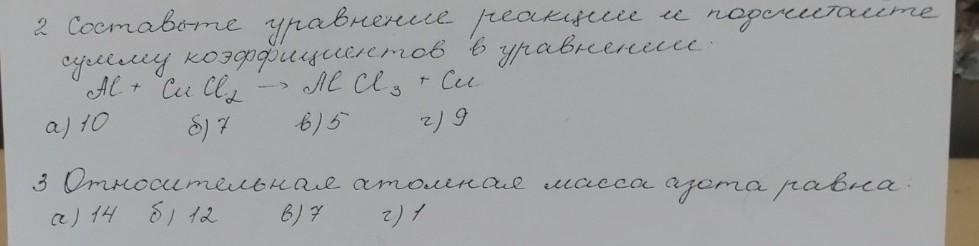 2 Составьте уравнение реакции и подсчитайте
сумму коэффициентов в уравнении:
Al + CuCl₂ → AlCl₃ + Cu
а) 10 б) 7 в) 5 г) 9
3 Относительная атомная масса азота равна:
а) 14 б) 12 в) 7 г) 1